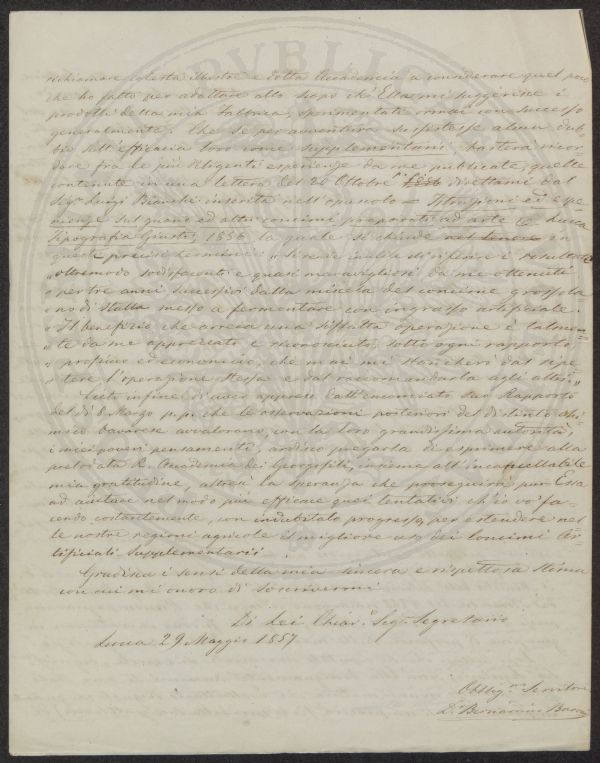 richiamare codesta illustre e dotta Accademia a considerare quel poco
che ho fatto per adattare allo scopo ch'Ella mi suggerisce i
prodotti della mia Fabbrica, sperimentati ormai con successo
generalmente. Che se per avventura sussistesse alcun dub-
bio sull'efficacia loro come supplementarii basterà ricor-
dare fra le più diligenti esperienze da me pubblicate, quelle
contenute in una lettera del 20 Ottobre 1856 direttami dal
Sigr Luigi Bianchi inserita nell'opuscolo = Istruzioni ed espe-
rienze sul guano ed altri concimi preparati ad arte = Lucca
Tipografia Giusti, 1856 la quale si chiude nel tenore in
questi precisi termini: "Sarebbe inutile il ripetere i resultati
"oltremodo sodisfacenti e quasi maravigliosi da me ottenuti
"per tre anni successivi dalla miscela del concime grossola
"no di stalla messo a fermentare con ingrasso artificiale.
"Il beneficio che arreca una siffatta operazione è talmen-
"te da me apprezzato e riconosciuto, sotto ogni rapporto
"proficuo ed economico, che mai mi stancherò dal ripe-
"tere l'operazione stessa e dal raccomandarla agli altri."
Lieto infine d'aver appreso dall'enunciato suo Rapporto
del dì 8 Marzo p.p. che le osservazioni posteriori del distinto chi-
mico Bavarese avvalorano, con la loro grandissima autorità,
i miei poveri pensamenti, ardisco pregarla di esprimere alla
prelodata R. Accademia dei Georgofili, insieme all'incancellabile
mia gratitudine, altresì la speranza che proseguirà pur Essa
ad aiutare nel modo più efficace quei tentativi ch'io vo' fa-
cendo costantemente, con indubitato progresso, per estendere nel-
le nostre regioni agricole il migliore uso dei Concimi Ar-
tificiali Supplementarii.
Gradisca i sensi della mia sincera e rispettosa stima
con cui mi onoro di soscrivermi
Di Lei Chiar.o Sigr Segretario
Lucca 29 Maggio 1857
Obblig.mo Servitore
Dr Bernardino